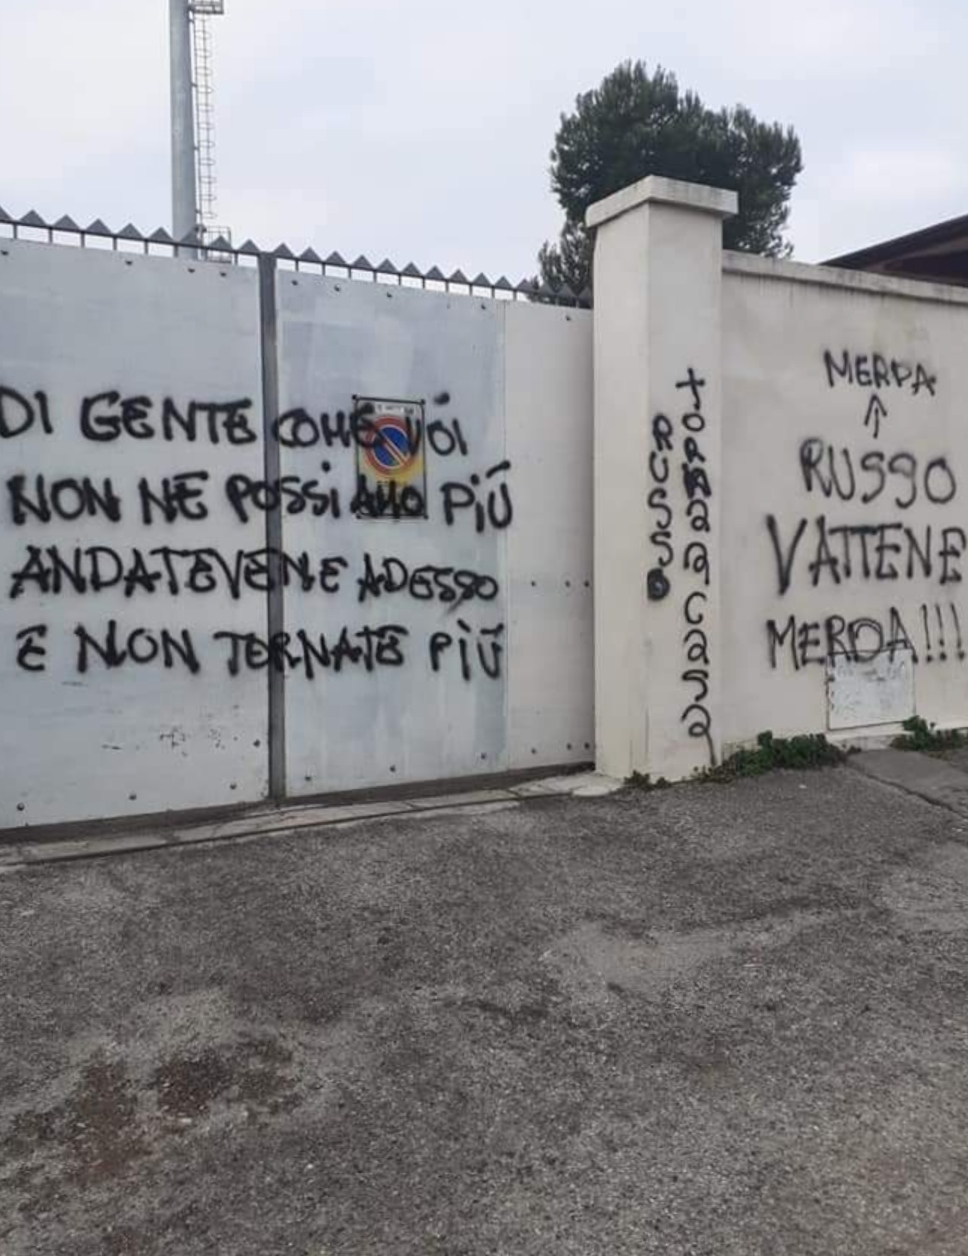 DI GENTE COME VOI
NON NE POSSiAMO PiÚ
ANDATEVENE ADESSO
E NON TORNATE PiÚ
RUSSO
tORNa a Casa
MERDA
↑
RUSSO
VATTENE
MERDA!!!